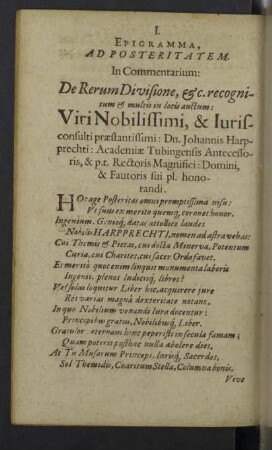 I.
EPIGRAMMA,
AD POSTERITATEM.
In Commentarium:
De Rerum Divisione, &c. recogni-
tum & multis in locis auctum:
Viri Nobilissimi, & Iuris-
consulti præstantissimi: Dn. Johannis Harp-
prechti: Academiæ Tubingensis Antecesso-
ris, & p.t. Rectoris Magnifici: Domini,
& Fautoris sui pl. hono-
randi.
HOc age Posteritas omni promptissima nisu:
Vt suus ex merito quemq, coronet honor.
Ingenium. Geniiq, datas attollito laudes
Nobilis HARPPRECHTI, nomen ad astra vehas:
Cui Themis & Pietas, cui docta Minerva, Potentum
Curia, cui Charites, cui sacer Ordo favet.
Et meritò quot enim linquit monumenta laboris
Ingenii, plenos Iudiciiq, libros?
Vel solus loquitur Liber hic, acquirere jure
Res varias magnâ dexteritate notans.
In quo Nobilium venandi Iura docentur:
Principibus gratus, Nobilibusq, Liber.
Gratulor æternam hinc peperisti in secula famam;
Quam poterit posthac nulla abolere dies.
At Tu Musarum Princeps, Iurisq, Sacerdos,
Sol Themidis, Charitum Stella, Columna bonis.
Vive